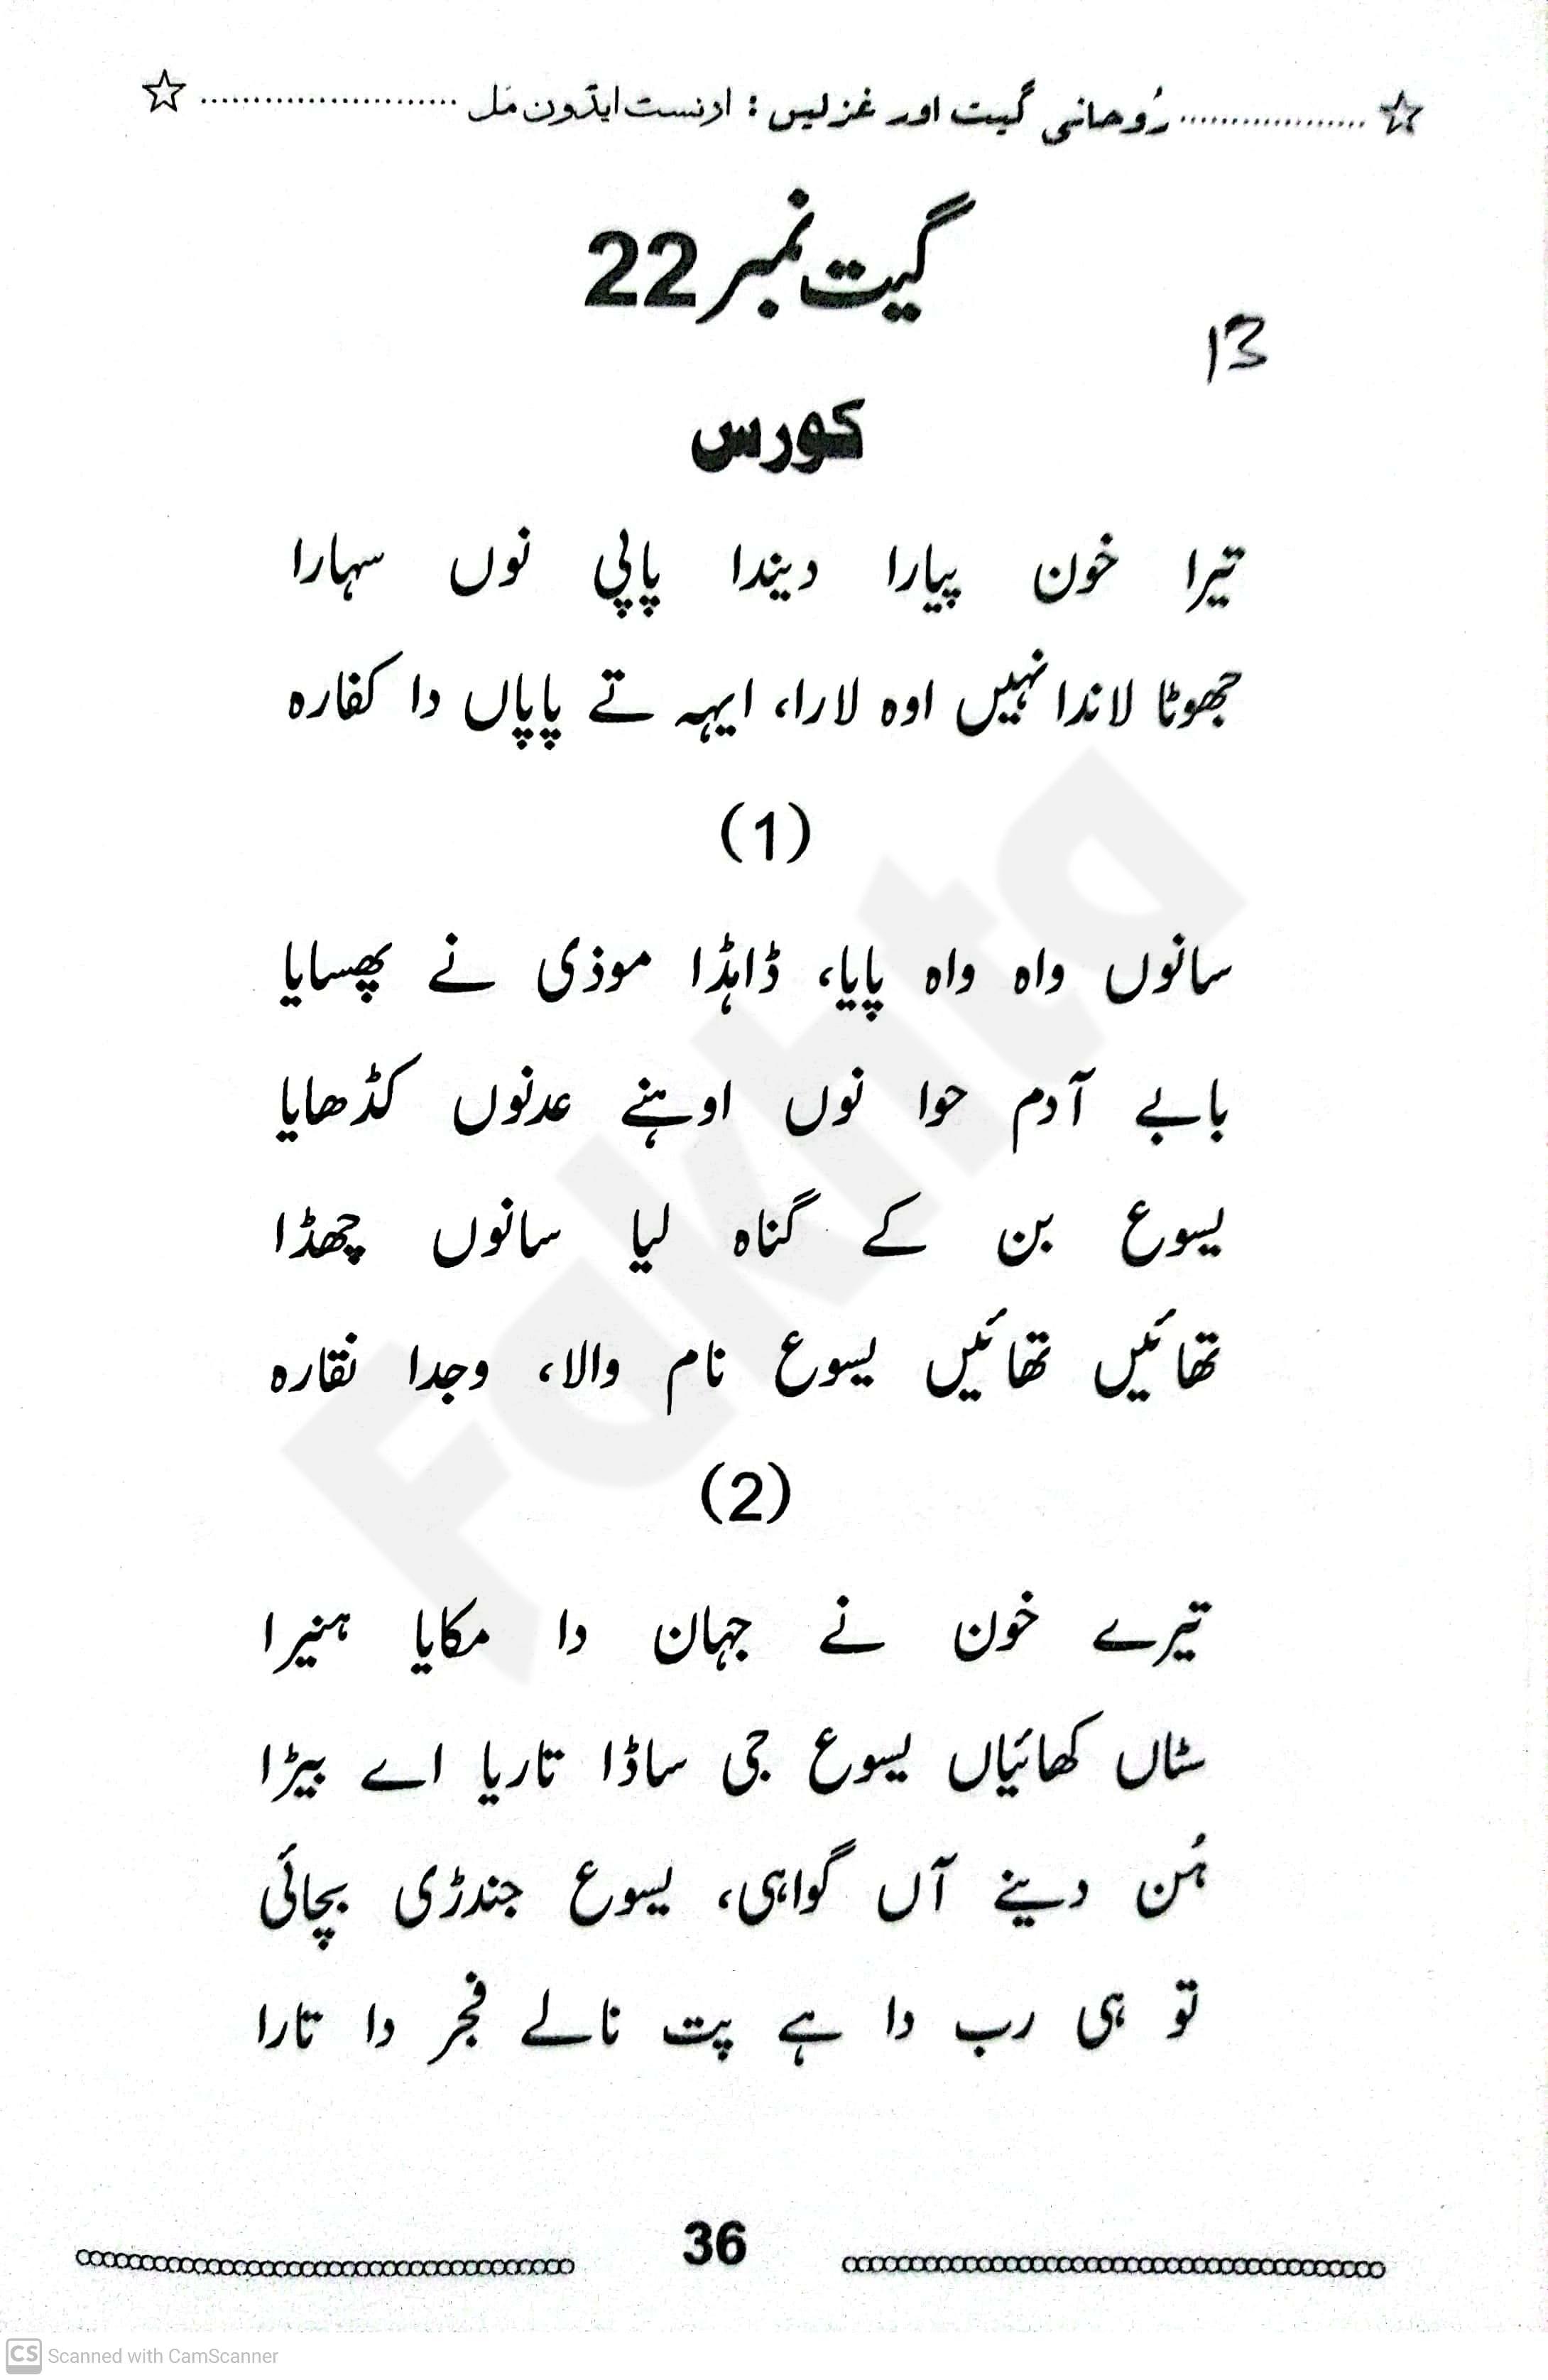 رُوحانی گیت اور غزلیں : ارنسٹ ایڈون مَل
گیت نمبر 22
13
کورس
تیرا خون پیارا دیندا پاپی نوں سہارا
جھوٹا لاندا نہیں اوہ لارا، ایہہ تے پاپاں دا کفارہ
(1)
سانوں واہ واہ پایا، ڈاہڈا موذی نے پھسایا
بابے آدم حوا نوں اوہنے عدنوں کڈھایا
یسوع بن کے گناہ لیا سانوں چھڈا
تھائیں تھائیں یسوع نام والا، وجدا نقارہ
(2)
تیرے خون نے جہان دا مکایا ہنیرا
سٹاں کھائیاں یسوع جی ساڈا تاریا اے بیڑا
ہُن دینے آں گواہی، یسوع جندڑی بچائی
تو ہی رب دا ہے پت نالے فجر دا تارا
36
Fakhta
CS Scanned with CamScanner